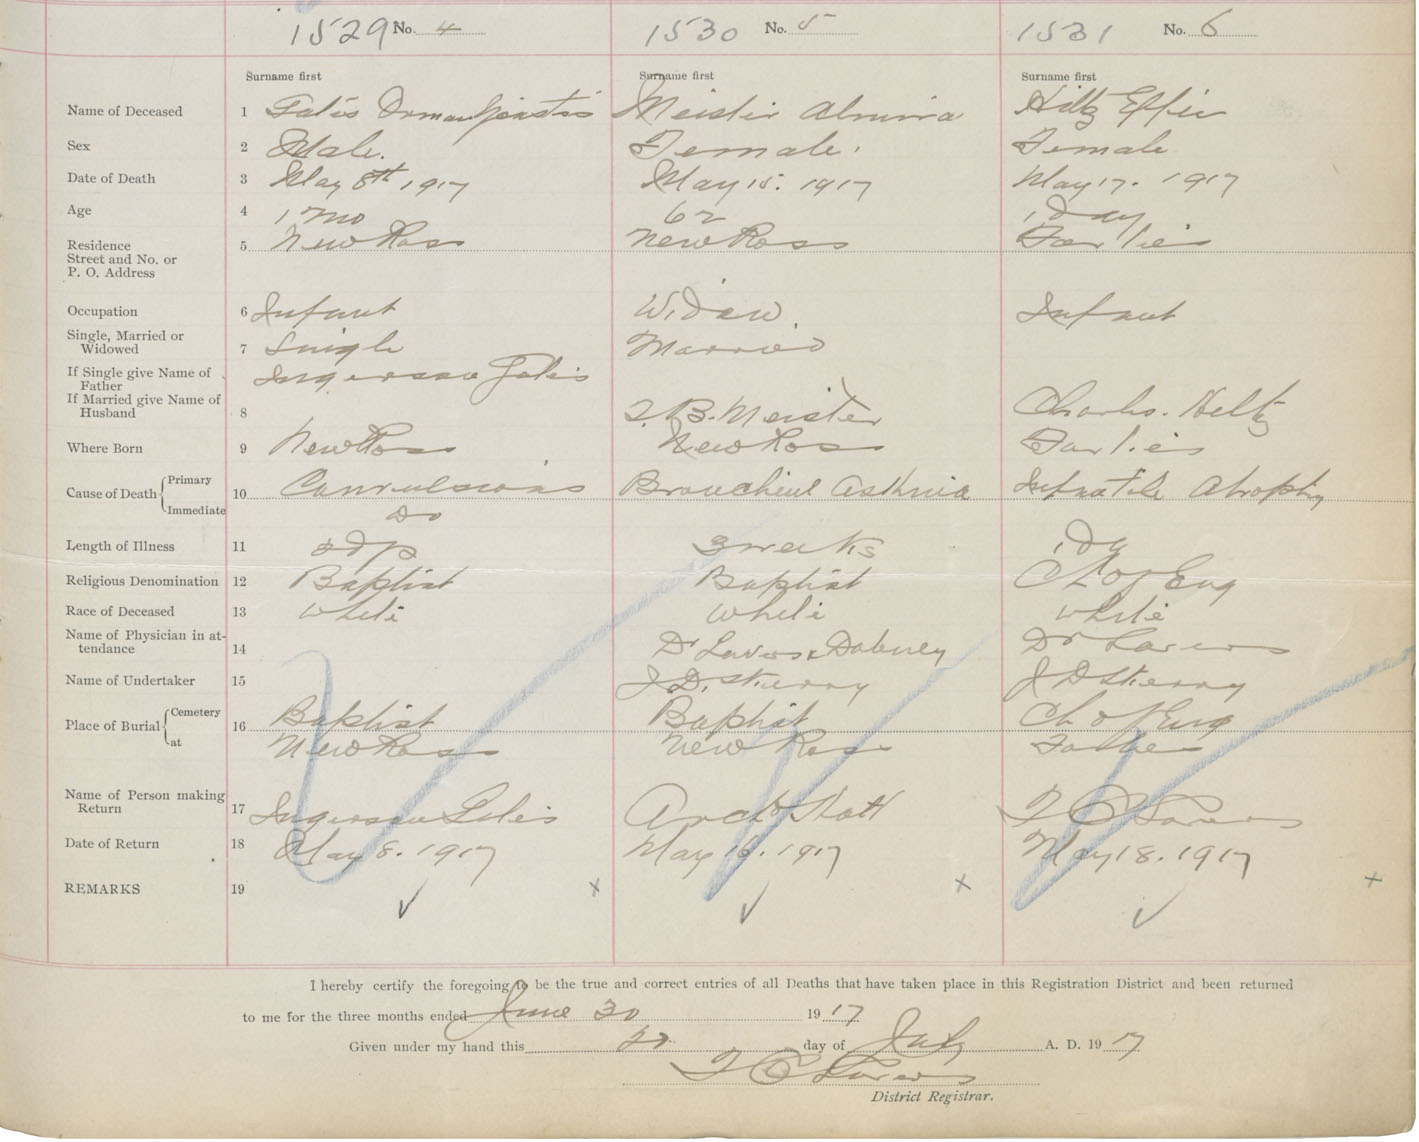 1529 No. 4 1530 No. 5 1531 No. 6
Surname first Surname first Surname first
Name of Deceased 1 Meister Almira Hiltz Effie
Sex 2 Male. Female. Female
Date of Death 3 May 8th 1917 May 15. 1917 May 17. 1917
Age 4 1 mo 62 1 Day
Residence 5 New Ross New Ross Farlies
Street and No. or
P. O. Address
Occupation 6 Infant Widow Infant
Single, Married or
Widowed 7 Single Married
If Single give Name of
Father
If Married give Name of
Husband 8 B. Meister Charles. Hiltz
Where Born 9 New Ross New Ross Farlies
Cause of Death Primary 10 Convulsions Bronchial Asthma Infantile Atrophy
Immediate Do
Length of Illness 11 3 weeks 1 Da
Religious Denomination 12 Baptist Baptist Ch of Eng
Race of Deceased 13 White White White
Name of Physician in at-
tendance 14 Dr & Dr
Name of Undertaker 15 J. D. J D
Place of Burial Cemetery 16 Baptist Baptist Ch of Eng
at New Ross New Ross
Name of Person making
Return 17 Ingerson
Date of Return 18 May 8. 1917 May 16. 1917 May 18. 1917
REMARKS 19
I hereby certify the foregoing to be the true and correct entries of all Deaths that have taken place in this Registration District and been returned
to me for the three months ended June 30 1917
Given under my hand this day of July A. D. 1917
District Registrar.